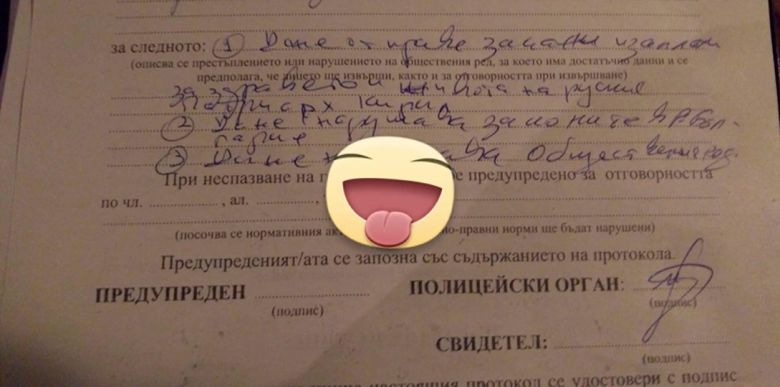 за следното: ① Да не отправя закани и заплахи
(описва се престъплението или нарушението на обществения ред, за което има достатъчно данни и се
предполага, че лицето ще извърши, както и за отговорността при извършване)
за здравето и живота на руския
Патриарх Кирил
② Да не нарушава законите в Р Бъл-
гария
③ Да не обществения ред.
При неспазване на е предупредено за отговорността
по чл. ...................., ал. ..............,
(посочва се нормативния но-правни норми ще бъдат нарушени)
Предупреденият/ата се запозна със съдържанието на протокола.
ПРЕДУПРЕДЕН ........................ ПОЛИЦЕЙСКИ ОРГАН:
(подпис) (подпис)
СВИДЕТЕЛ: ........................
(подпис)
настоящия протокол се удостовери с подпис